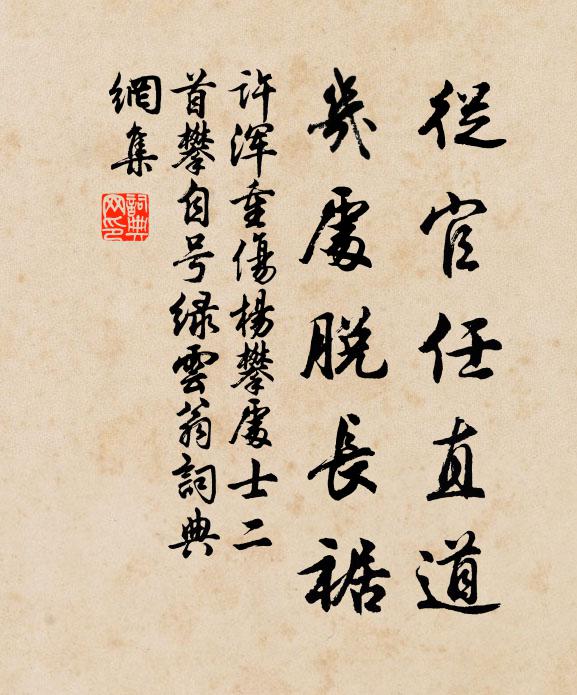 從官任直道
幾處脫長裾
許渾重傷楊攀處士二
首攀自号緑雲翁詞典
網集
詞典网印